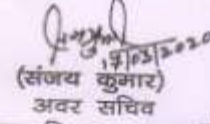 17/03/2020
(संजय कुमार)
अवर सचिव